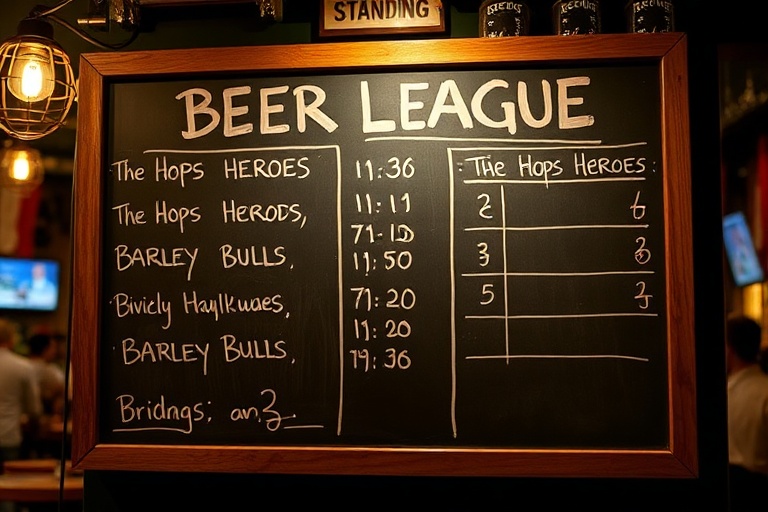 STANDING
BEER LEAGUE
The Hops HEROES
The Hops HERODS,
BARLEY BULLS.
Bivicly Haylkwaes,
BARLEY BULLS,
Bridngs: an.3
11:36
11:11
71-10
11:50
71:20
11:20
19:36
: The Hops HEROES:
2
3
5